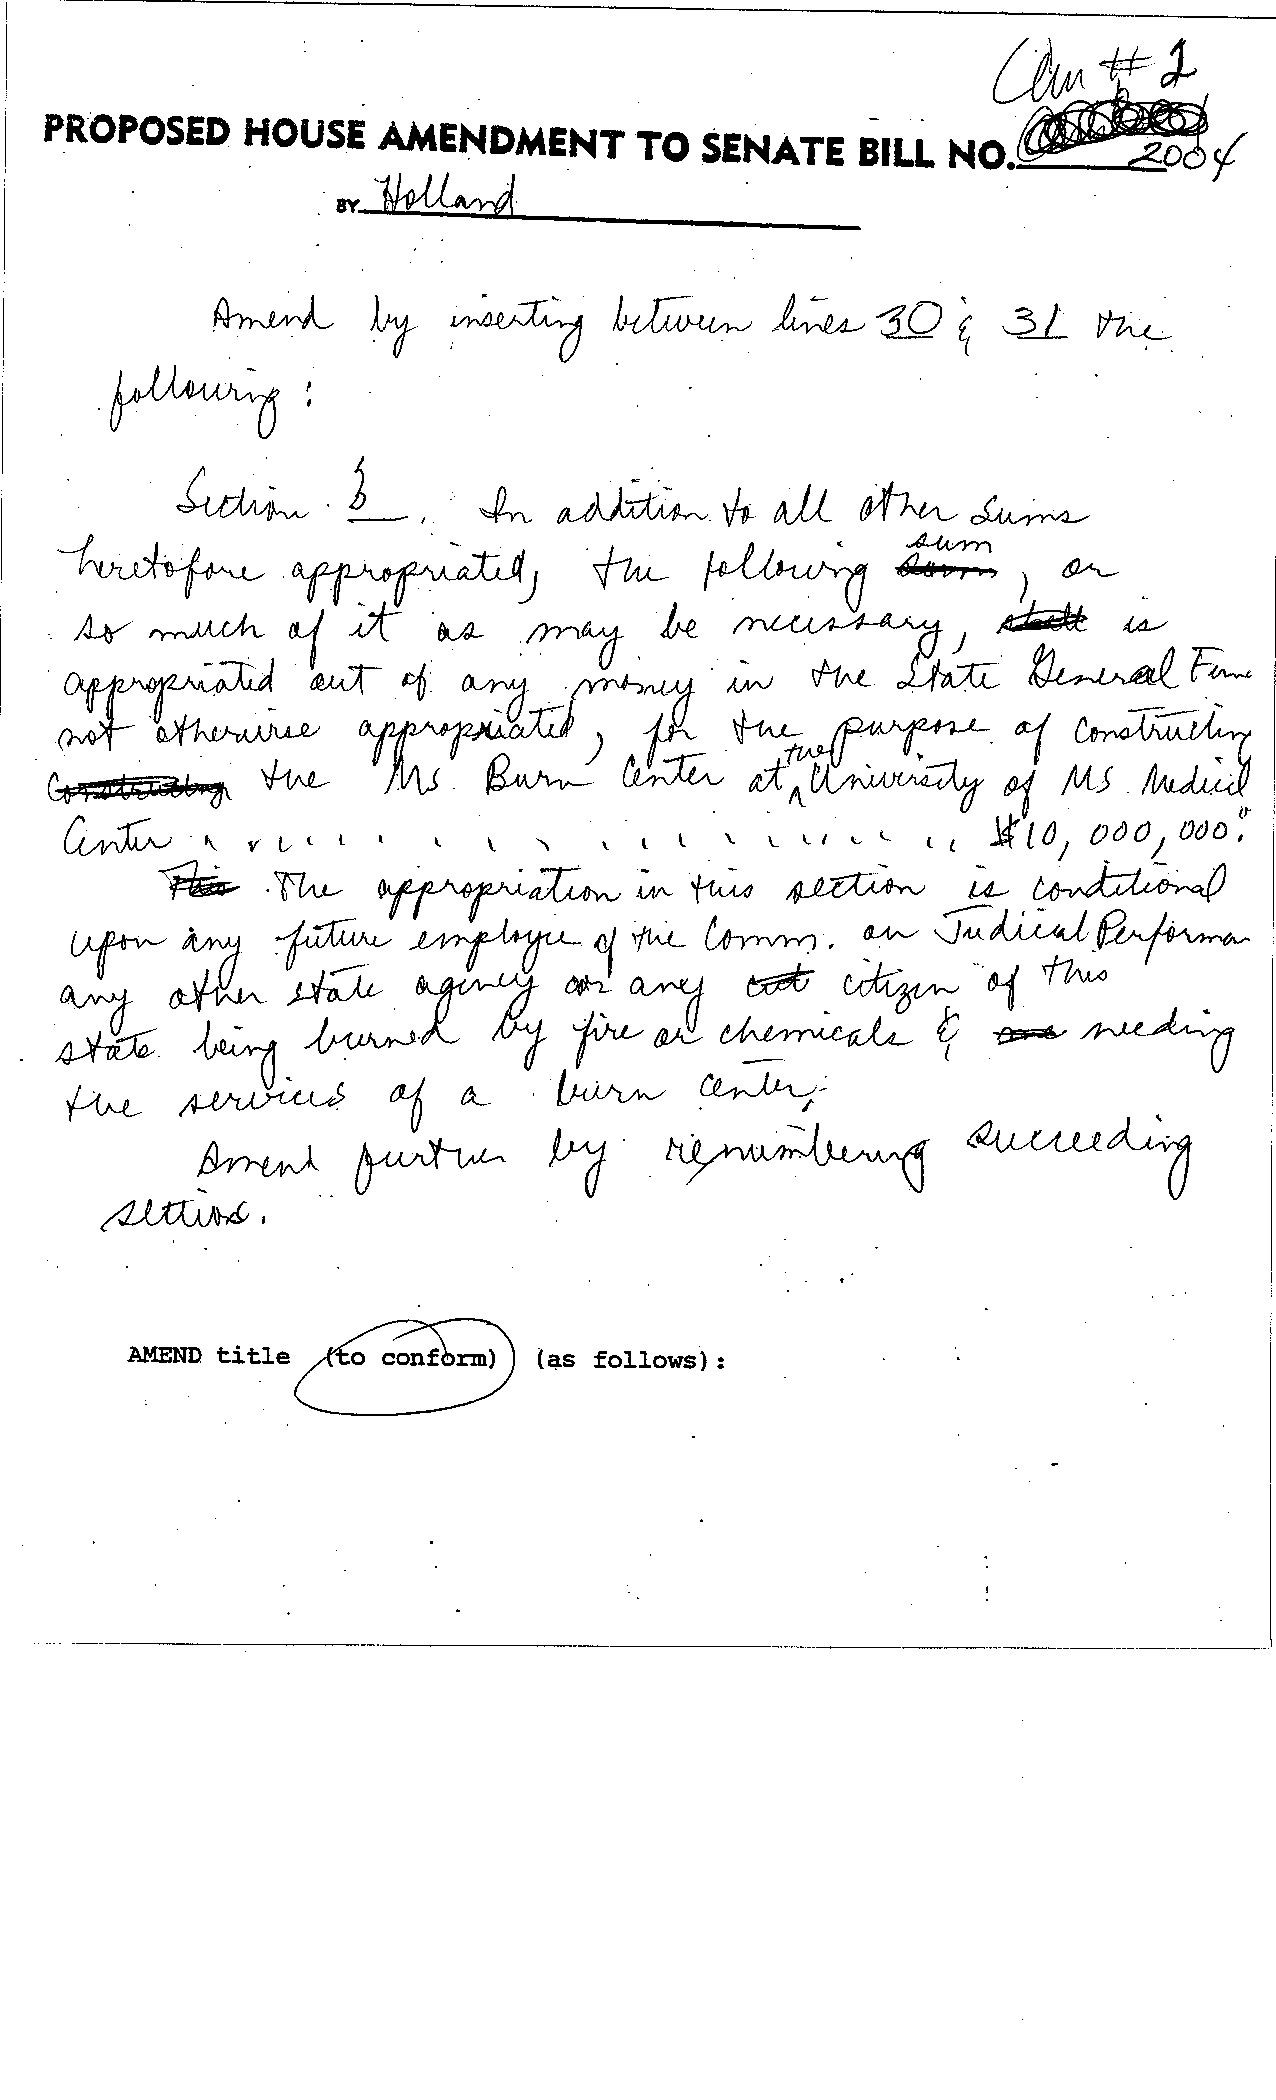 Am # 2
PROPOSED HOUSE AMENDMENT TO SENATE BILL NO. 2004
BY Holland
Amend by inserting between lines 30 & 31 the
following:
Section 3. In addition to all other sums
sum
heretofore appropriated, the following , or
so much of it as may be necessary, shall is
appropriated out of any money in the State General Fun
not otherwise appropriated, for the purpose of constructing
the
Constructing the Ms. Burn Center at University of MS Medical
Center . . . . . . . . . . . . . . . . . . $10,000,000.
This The appropriation in this section is conditional
upon any future employee of the Comm. on Judicial Performan
any other state agency or any cit citizen of this
state being burned by fire or chemicals & needing
the services of a burn center.
Amend further by renumbering succeeding
sections.
AMEND title (to conform) (as follows):